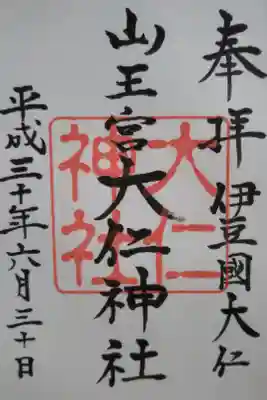 奉拝 伊豆國大仁
山王宮大仁神社
平成三十年六月三十日
大仁
神社